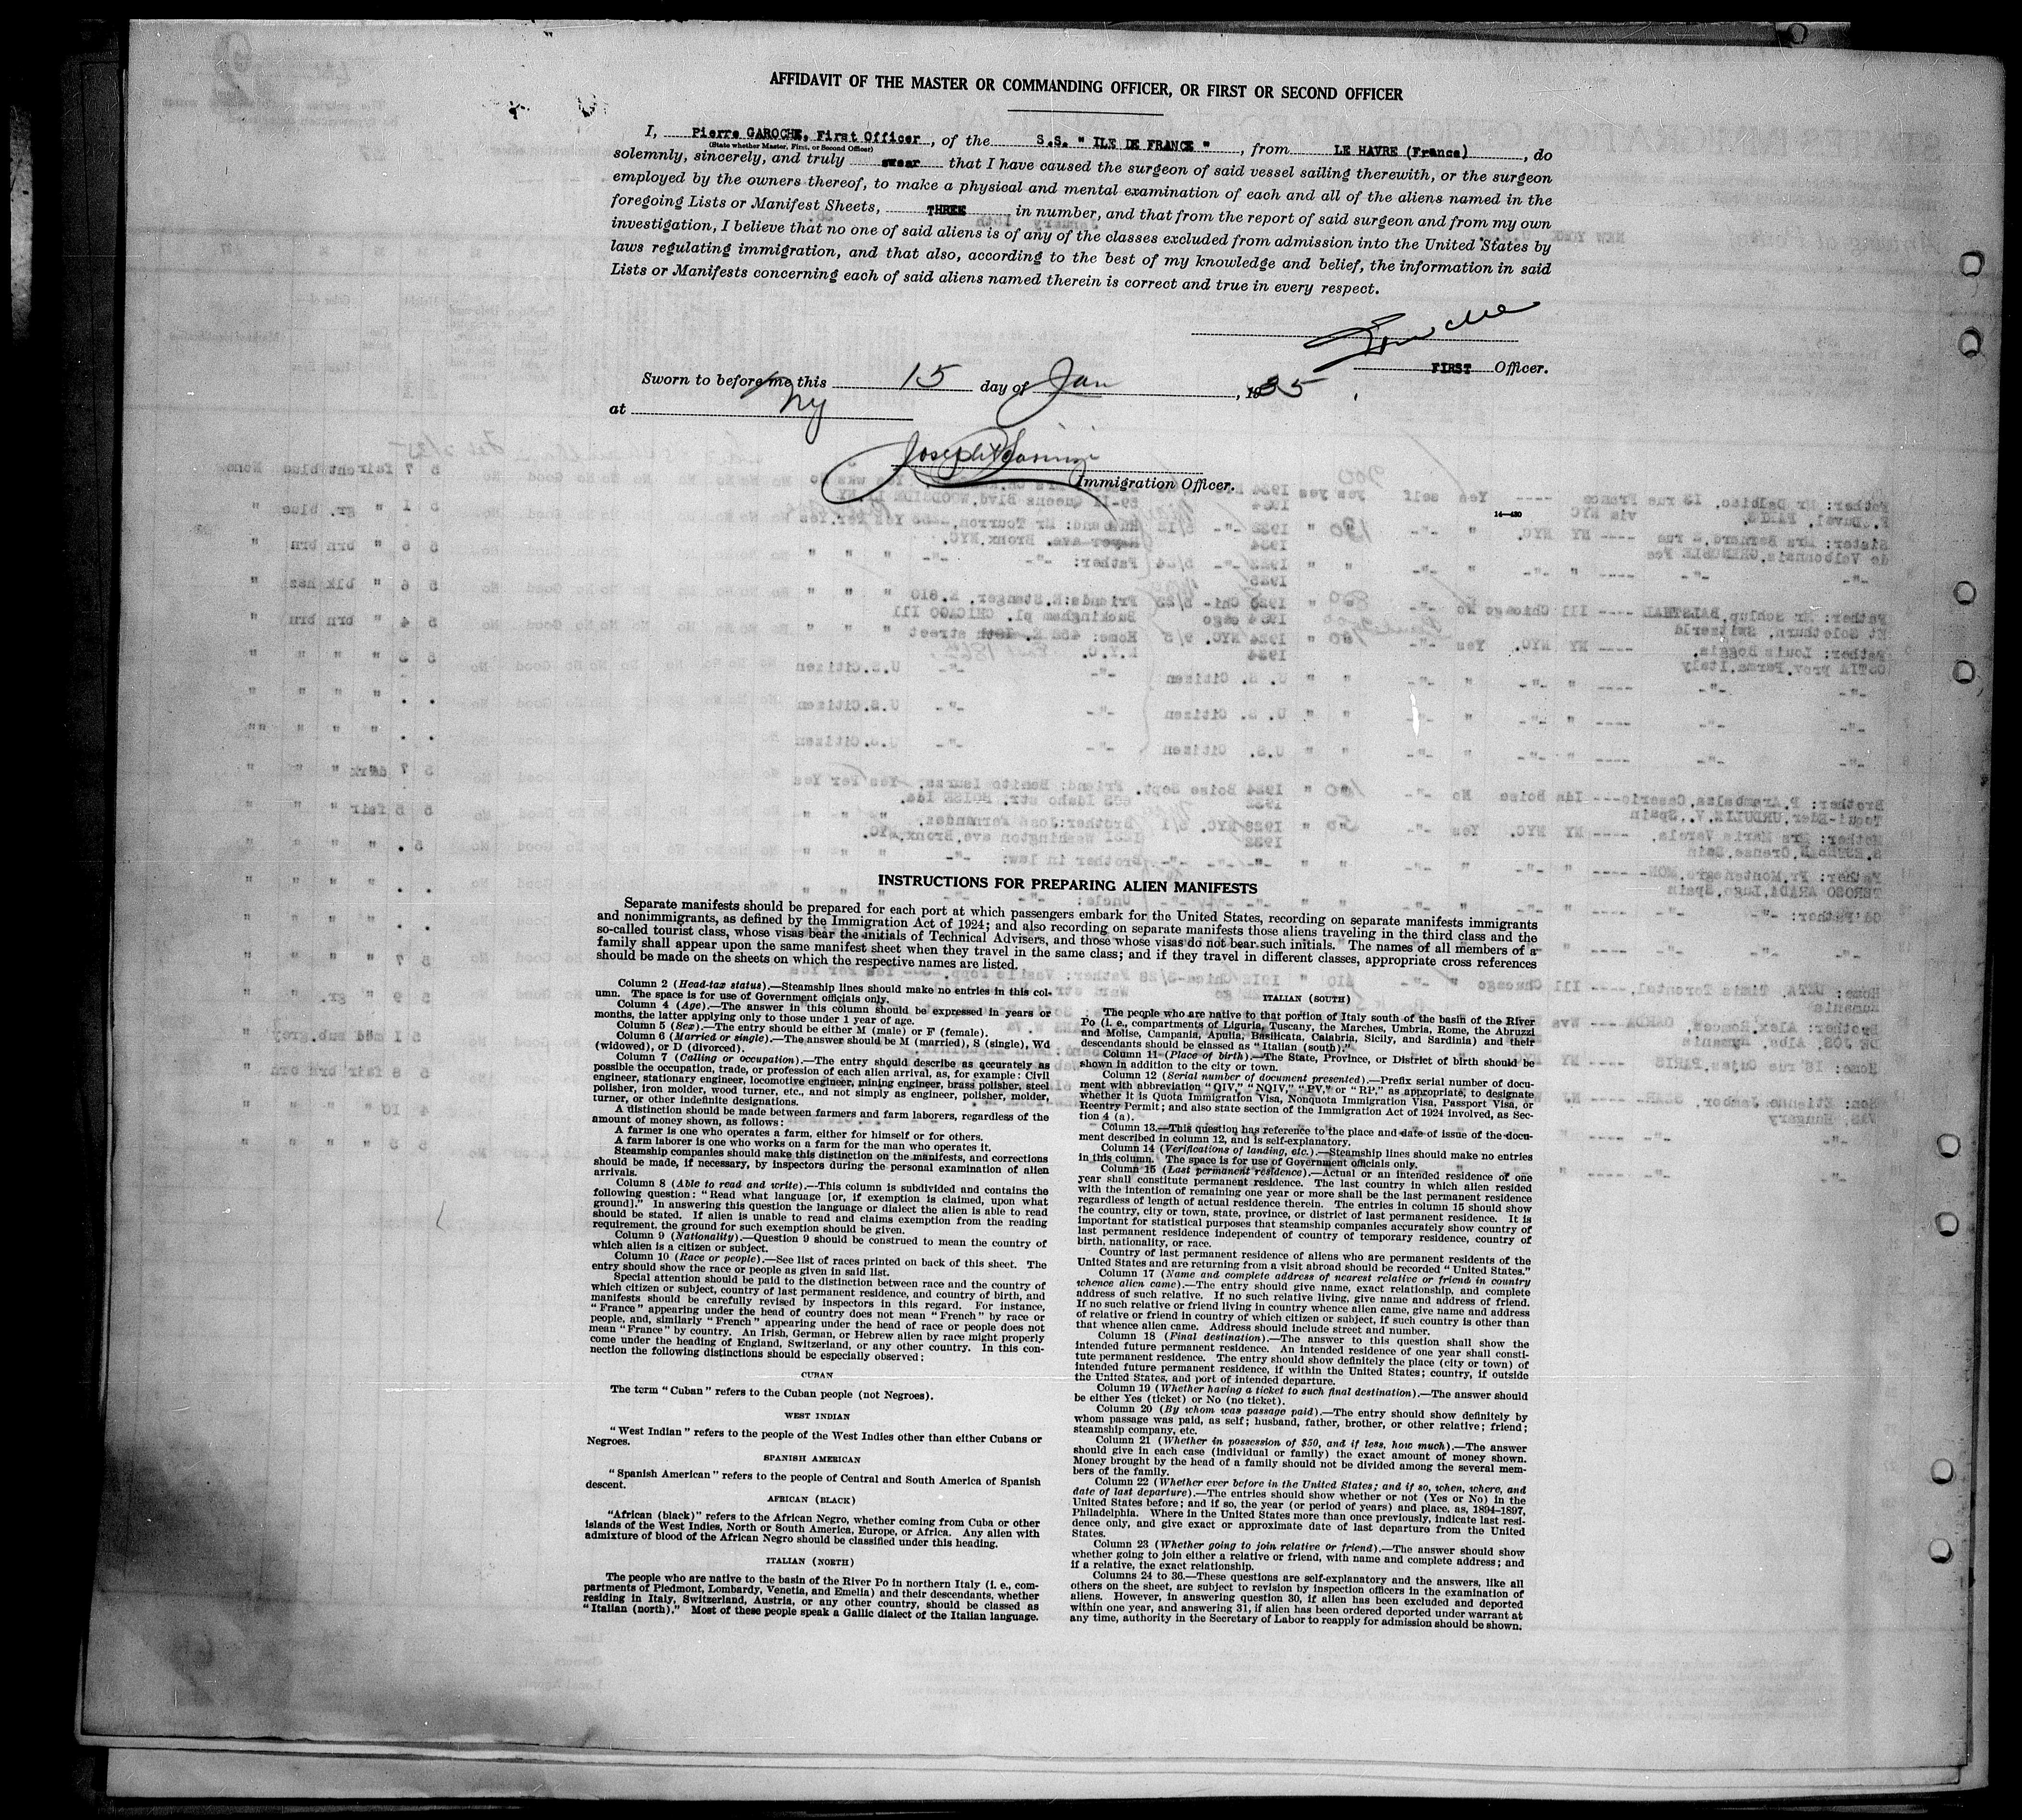 AFFIDAVIT OF THE MASTER OR COMMANDING OFFICER, OR FIRST OR SECOND OFFICER
I, Pierre GAROCHE, First Officer, of the S.S. " ILE DE FRANCE ", from LE HAVRE (France), do
(State whether Master, First, or Second Officer)
solemnly, sincerely, and truly swear that I have caused the surgeon of said vessel sailing therewith, or the surgeon
employed by the owners thereof, to make a physical and mental examination of each and all of the aliens named in the
foregoing Lists or Manifest Sheets, THREE in number, and that from the report of said surgeon and from my own
investigation, I believe that no one of said aliens is of any of the classes excluded from admission into the United States by
laws regulating immigration, and that also, according to the best of my knowledge and belief, the information in said
Lists or Manifests concerning each of said aliens named therein is correct and true in every respect.
FIRST Officer.
Sworn to before me this 15 day of Jan, 1935
at NY
Immigration Officer.
14—430
INSTRUCTIONS FOR PREPARING ALIEN MANIFESTS
Separate manifests should be prepared for each port at which passengers embark for the United States, recording on separate manifests immigrants
and nonimmigrants, as defined by the Immigration Act of 1924; and also recording on separate manifests those aliens traveling in the third class and the
so-called tourist class, whose visas bear the initials of Technical Advisers, and those whose visas do not bear such initials. The names of all members of a
family shall appear upon the same manifest sheet when they travel in the same class; and if they travel in different classes, appropriate cross references
should be made on the sheets on which the respective names are listed.
Column 2 (Head-tax status).—Steamship lines should make no entries in this col-
umn. The space is for use of Government officials only.
Column 4 (Age).—The answer in this column should be expressed in years or
months, the latter applying only to those under 1 year of age.
Column 5 (Sex).—The entry should be either M (male) or F (female).
Column 6 (Married or single).—The answer should be M (married), S (single), Wd
(widowed), or D (divorced).
Column 7 (Calling or occupation).—The entry should describe as accurately as
possible the occupation, trade, or profession of each alien arrival, as, for example: Civil
engineer, stationary engineer, locomotive engineer, mining engineer, brass polisher, steel
polisher, iron molder, wood turner, etc., and not simply as engineer, polisher, molder,
turner, or other indefinite designations.
A distinction should be made between farmers and farm laborers, regardless of the
amount of money shown, as follows:
A farmer is one who operates a farm, either for himself or for others.
A farm laborer is one who works on a farm for the man who operates it.
Steamship companies should make this distinction on the manifests, and corrections
should be made, if necessary, by inspectors during the personal examination of alien
arrivals.
Column 8 (Able to read and write).—This column is subdivided and contains the
following question: "Read what language [or, if exemption is claimed, upon what
ground]." In answering this question the language or dialect the alien is able to read
should be stated. If alien is unable to read and claims exemption from the reading
requirement, the ground for such exemption should be given.
Column 9 (Nationality).—Question 9 should be construed to mean the country of
which alien is a citizen or subject.
Column 10 (Race or people).—See list of races printed on back of this sheet. The
entry should show the race or people as given in said list.
Special attention should be paid to the distinction between race and the country of
which citizen or subject, country of last permanent residence, and country of birth, and
manifests should be carefully revised by inspectors in this regard. For instance,
"France" appearing under the head of country does not mean "French" by race or
people, and, similarly "French" appearing under the head of race or people does not
mean "France" by country. An Irish, German, or Hebrew alien by race might properly
come under the heading of England, Switzerland, or any other country. In this con-
nection the following distinctions should be especially observed:
CUBAN
The term "Cuban" refers to the Cuban people (not Negroes).
WEST INDIAN
"West Indian" refers to the people of the West Indies other than either Cubans or
Negroes.
SPANISH AMERICAN
"Spanish American" refers to the people of Central and South America of Spanish
descent.
AFRICAN (BLACK)
"African (black)" refers to the African Negro, whether coming from Cuba or other
islands of the West Indies, North or South America, Europe, or Africa. Any alien with
admixture of blood of the African Negro should be classified under this heading.
ITALIAN (NORTH)
The people who are native to the basin of the River Po in northern Italy (i. e., com-
partments of Piedmont, Lombardy, Venetia, and Emelia) and their descendants, whether
residing in Italy, Switzerland, Austria, or any other country, should be classed as
"Italian (north)." Most of these people speak a Gallic dialect of the Italian language.
ITALIAN (SOUTH)
The people who are native to that portion of Italy south of the basin of the River
Po (i. e., compartments of Liguria, Tuscany, the Marches, Umbria, Rome, the Abruzzi
and Molise, Campania, Apulia, Basilicata, Calabria, Sicily, and Sardinia) and their
descendants should be classed as "Italian (south)."
Column 11 (Place of birth).—The State, Province, or District of birth should be
shown in addition to the city or town.
Column 12 (Serial number of document presented).—Prefix serial number of docu-
ment with abbreviation "QIV," "NQIV," "PV," or "RP," as appropriate, to designate
whether it is Quota Immigration Visa, Nonquota Immigration Visa, Passport Visa, or
Reentry Permit; and also state section of the Immigration Act of 1924 involved, as Sec-
tion 4 (a).
Column 13.—This question has reference to the place and date of issue of the docu-
ment described in column 12, and is self-explanatory.
Column 14 (Verifications of landing, etc.).—Steamship lines should make no entries
in this column. The space is for use of Government officials only.
Column 15 (Last permanent residence).—Actual or an intended residence of one
year shall constitute permanent residence. The last country in which alien resided
with the intention of remaining one year or more shall be the last permanent residence
regardless of length of actual residence therein. The entries in column 15 should show
the country, city or town, state, province, or district of last permanent residence. It is
important for statistical purposes that steamship companies accurately show country of
last permanent residence independent of country of temporary residence, country of
birth, nationality, or race.
Country of last permanent residence of aliens who are permanent residents of the
United States and are returning from a visit abroad should be recorded "United States."
Column 17 (Name and complete address of nearest relative or friend in country
whence alien came).—The entry should give name, exact relationship, and complete
address of such relative. If no such relative living, give name and address of friend.
If no such relative or friend living in country whence alien came, give name and address
of relative or friend in country of which citizen or subject, if such country is other than
that whence alien came. Address should include street and number.
Column 18 (Final destination).—The answer to this question shall show the
intended future permanent residence. An intended residence of one year shall consti-
tute permanent residence. The entry should show definitely the place (city or town) of
intended future permanent residence, if within the United States; country, if outside
the United States, and port of intended departure.
Column 19 (Whether having a ticket to such final destination).—The answer should
be either Yes (ticket) or No (no ticket).
Column 20 (By whom was passage paid).—The entry should show definitely by
whom passage was paid, as self; husband, father, brother, or other relative; friend;
steamship company, etc.
Column 21 (Whether in possession of $50, and if less, how much).—The answer
should give in each case (individual or family) the exact amount of money shown.
Money brought by the head of a family should not be divided among the several mem-
bers of the family.
Column 22 (Whether ever before in the United States; and if so, when, where, and
date of last departure).—The entries should show whether or not (Yes or No) in the
United States before; and if so, the year (or period of years) and place, as, 1894–1897,
Philadelphia. Where in the United States more than once previously, indicate last resi-
dence only, and give exact or approximate date of last departure from the United
States.
Column 23 (Whether going to join relative or friend).—The answer should show
whether going to join either a relative or friend, with name and complete address; and
if a relative, the exact relationship.
Columns 24 to 36.—These questions are self-explanatory and the answers, like all
others on the sheet, are subject to revision by inspection officers in the examination of
aliens. However, in answering question 30, if alien has been excluded and deported
within one year, and answering 31, if alien has been ordered deported under warrant at
any time, authority in the Secretary of Labor to reapply for admission should be shown.